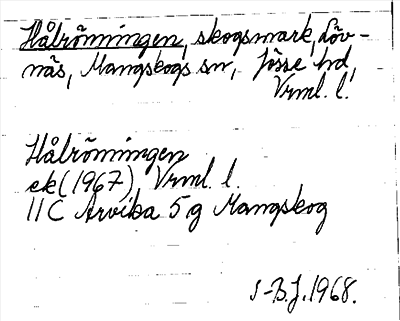 Hålrömningen, skogsmark, Löv-
näs, Mangskogs sn, Jösse hd,
Vrml. l.
Hålrömningen
ek (1967), Vrml. l.
11 C Arvika 5 g Mangskog
S-B.J. 1968.